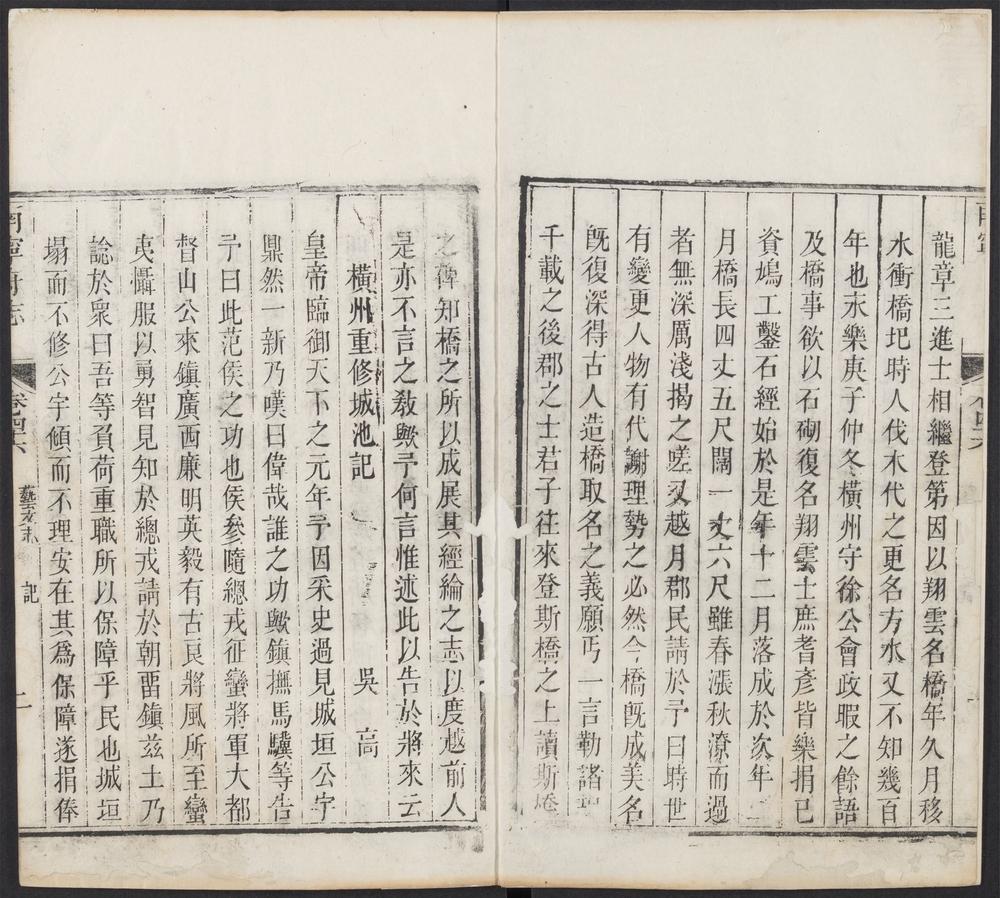 龍章三進士相繼登第因以翔雲名橋年久月移
水衝橋圯時人伐木代之更名方水又不知幾百
年也永樂庚子仲冬橫州守徐公會政暇之餘語
及橋事欲以石砌復名翔雲士庶耆彥皆樂捐已
資鳩工鑿石經始於是年十二月落成於次年
月橋長四丈五尺闊一丈六尺雖春漲秋潦而過
者無深厲淺揭之嗟又越月郡民請於予曰時世
有變更人物有代謝理勢之必然今橋旣成美名
旣復深得古人造橋取名之義願丐一言勒諸
千載之後郡之士君子往來登斯橋之上讀斯
之碑知橋之所以成展其經綸之志以度越前人
是亦不言之敎歟予何言惟述此以告於將來云
橫州重修城池記 吳高
皇帝臨御天下之元年予因采史過見城垣公宇
鼎然一新乃嘆曰偉哉誰之功歟鎮撫馬驥等告
予曰此范侯之功也侯參隨總戎征蠻將軍大都
督山公來鎮廣西廉明英毅有古良將風所至蠻
夷懾服以勇智見知於總戎請於朝畱鎮兹土乃
諗於衆曰吾等負荷重職所以保障乎民也城垣
塌而不修公宇傾而不理安在其爲保障遂捐俸
南寧府志 卷四六 藝文志 記 二